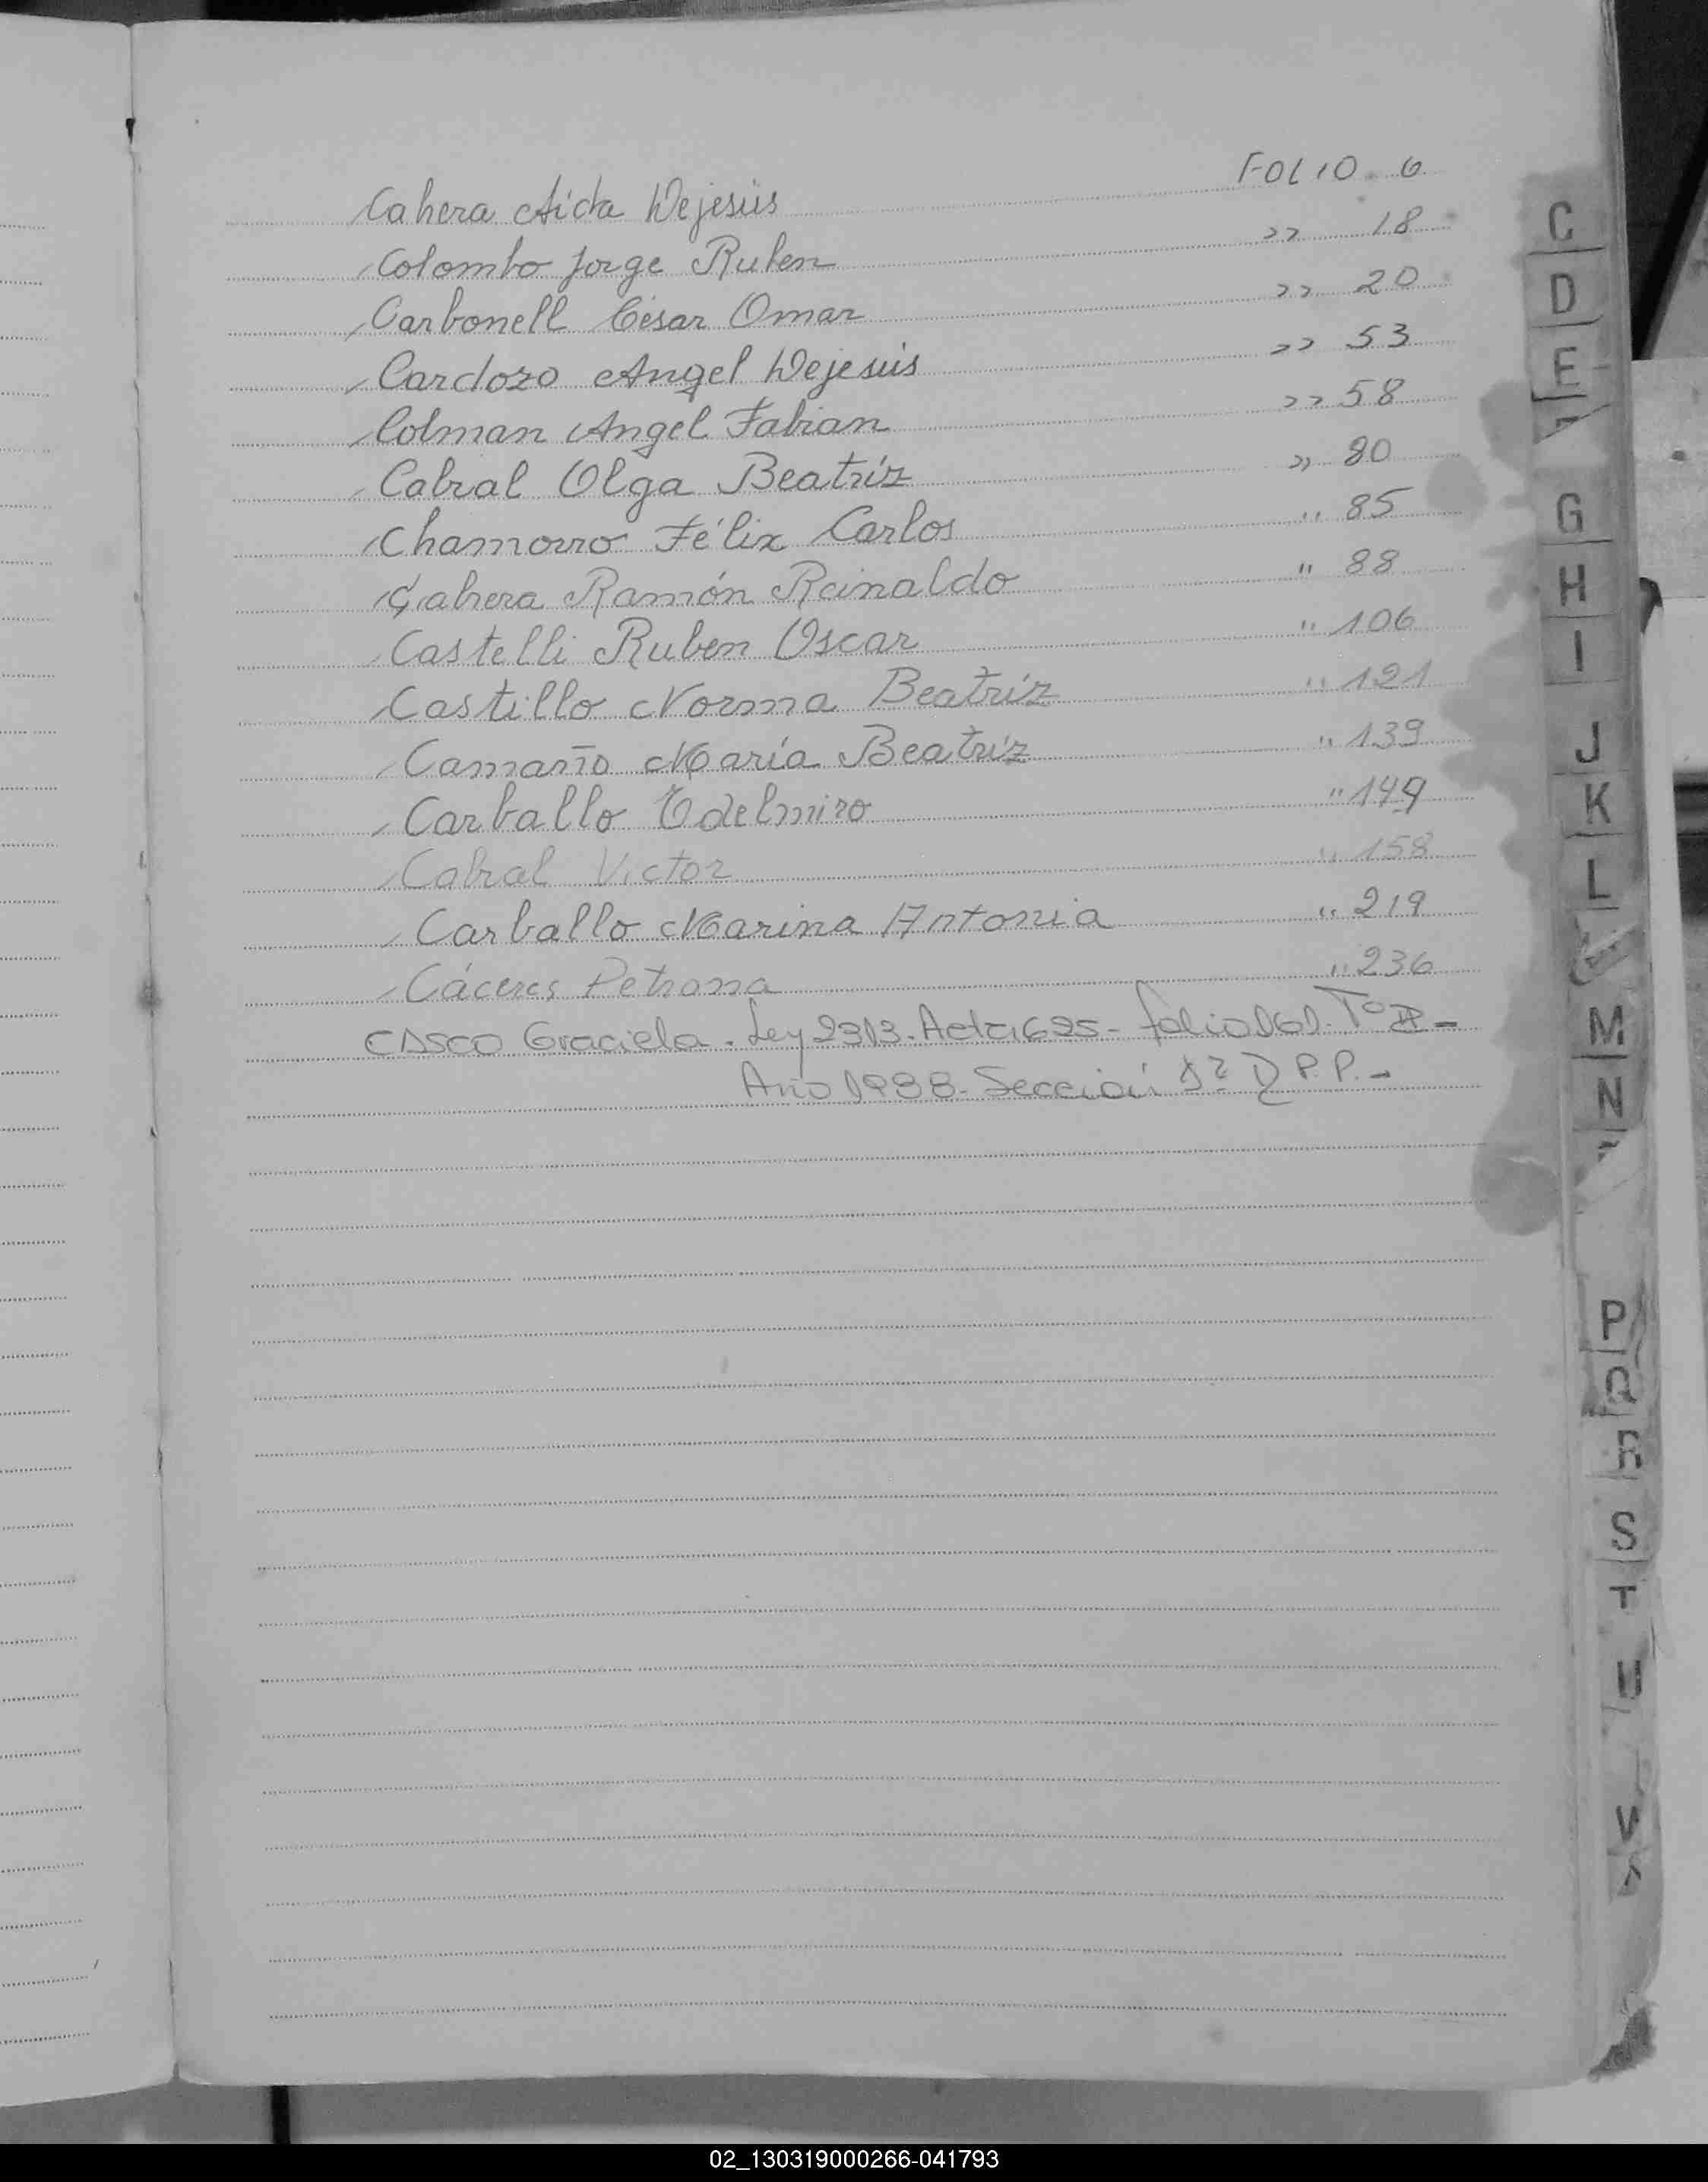 Cabrera Aida Dejesús FOLIO 6
Colombo Jorge Ruben >> 18
Carbonell César Omar >> 20
Cardozo Angel Dejesús >> 53
Colman Angel Fabian >> 58
Cabral Olga Beatríz >> 80
Chamorro Félix Carlos " 85
Cabrera Ramón Reinaldo " 88
Castelli Ruben Oscar " 106
Castillo Norma Beatríz " 121
Camaño María Beatríz " 139
Carballo Edelmiro " 149
Cabral Victor " 158
Carballo Marina Antonia " 219
Cáceres Petrona " 236
CASCO Graciela. Ley 2313. Acta 1625- folio 161. Tº II -
Año 1988- Sección 1ª D P.P. -
C
D
E
G
H
I
J
K
L
M
N
P
Q
R
S
T
U
V
02_130319000266-041793